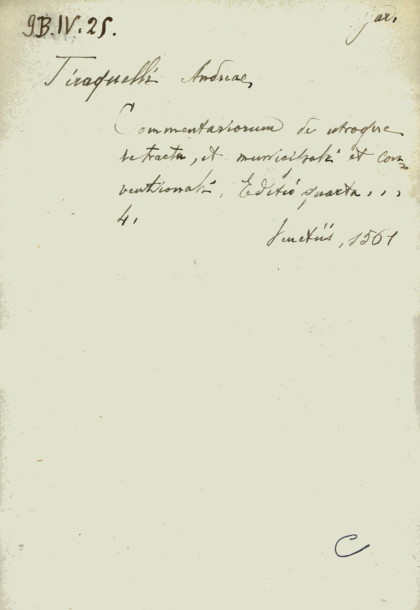 9B.IV.25.
jar.
Tiraquelli Andreae,
Commentariorum de utroque
retractu, et municipali et con-
ventionali, Editio quarta...
4.
Venetiis, 1561
C